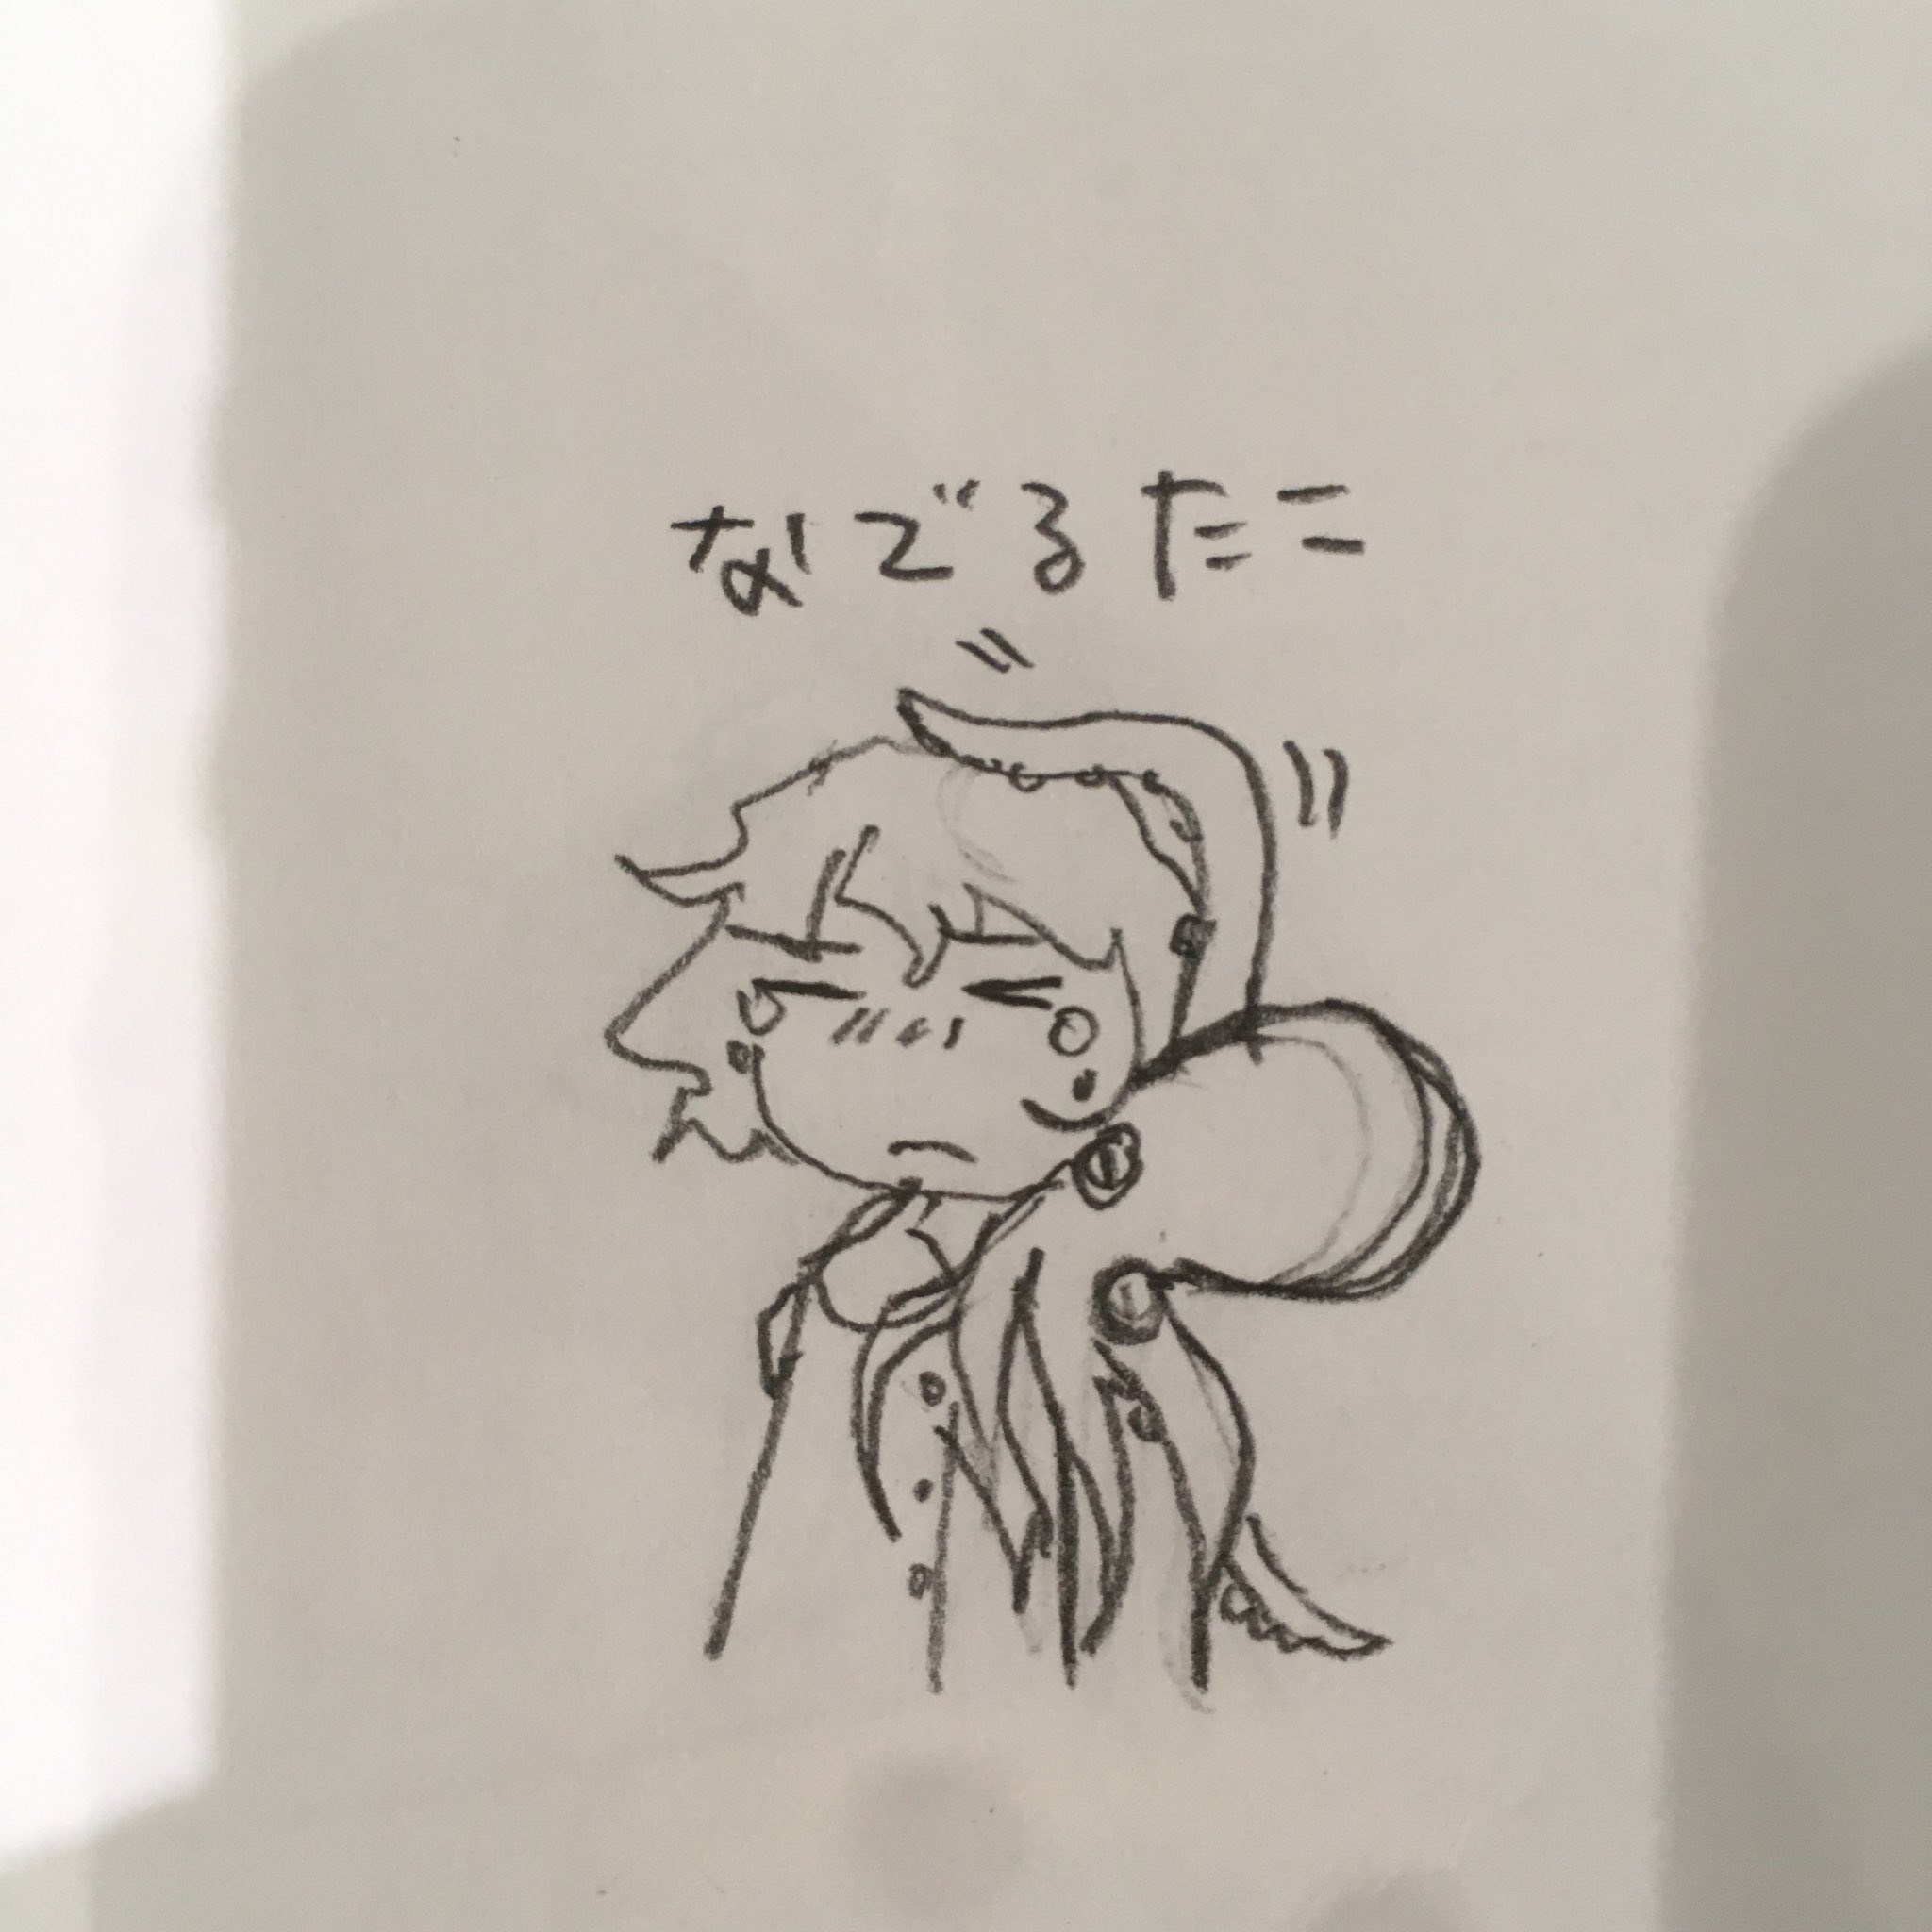 なでるたこ